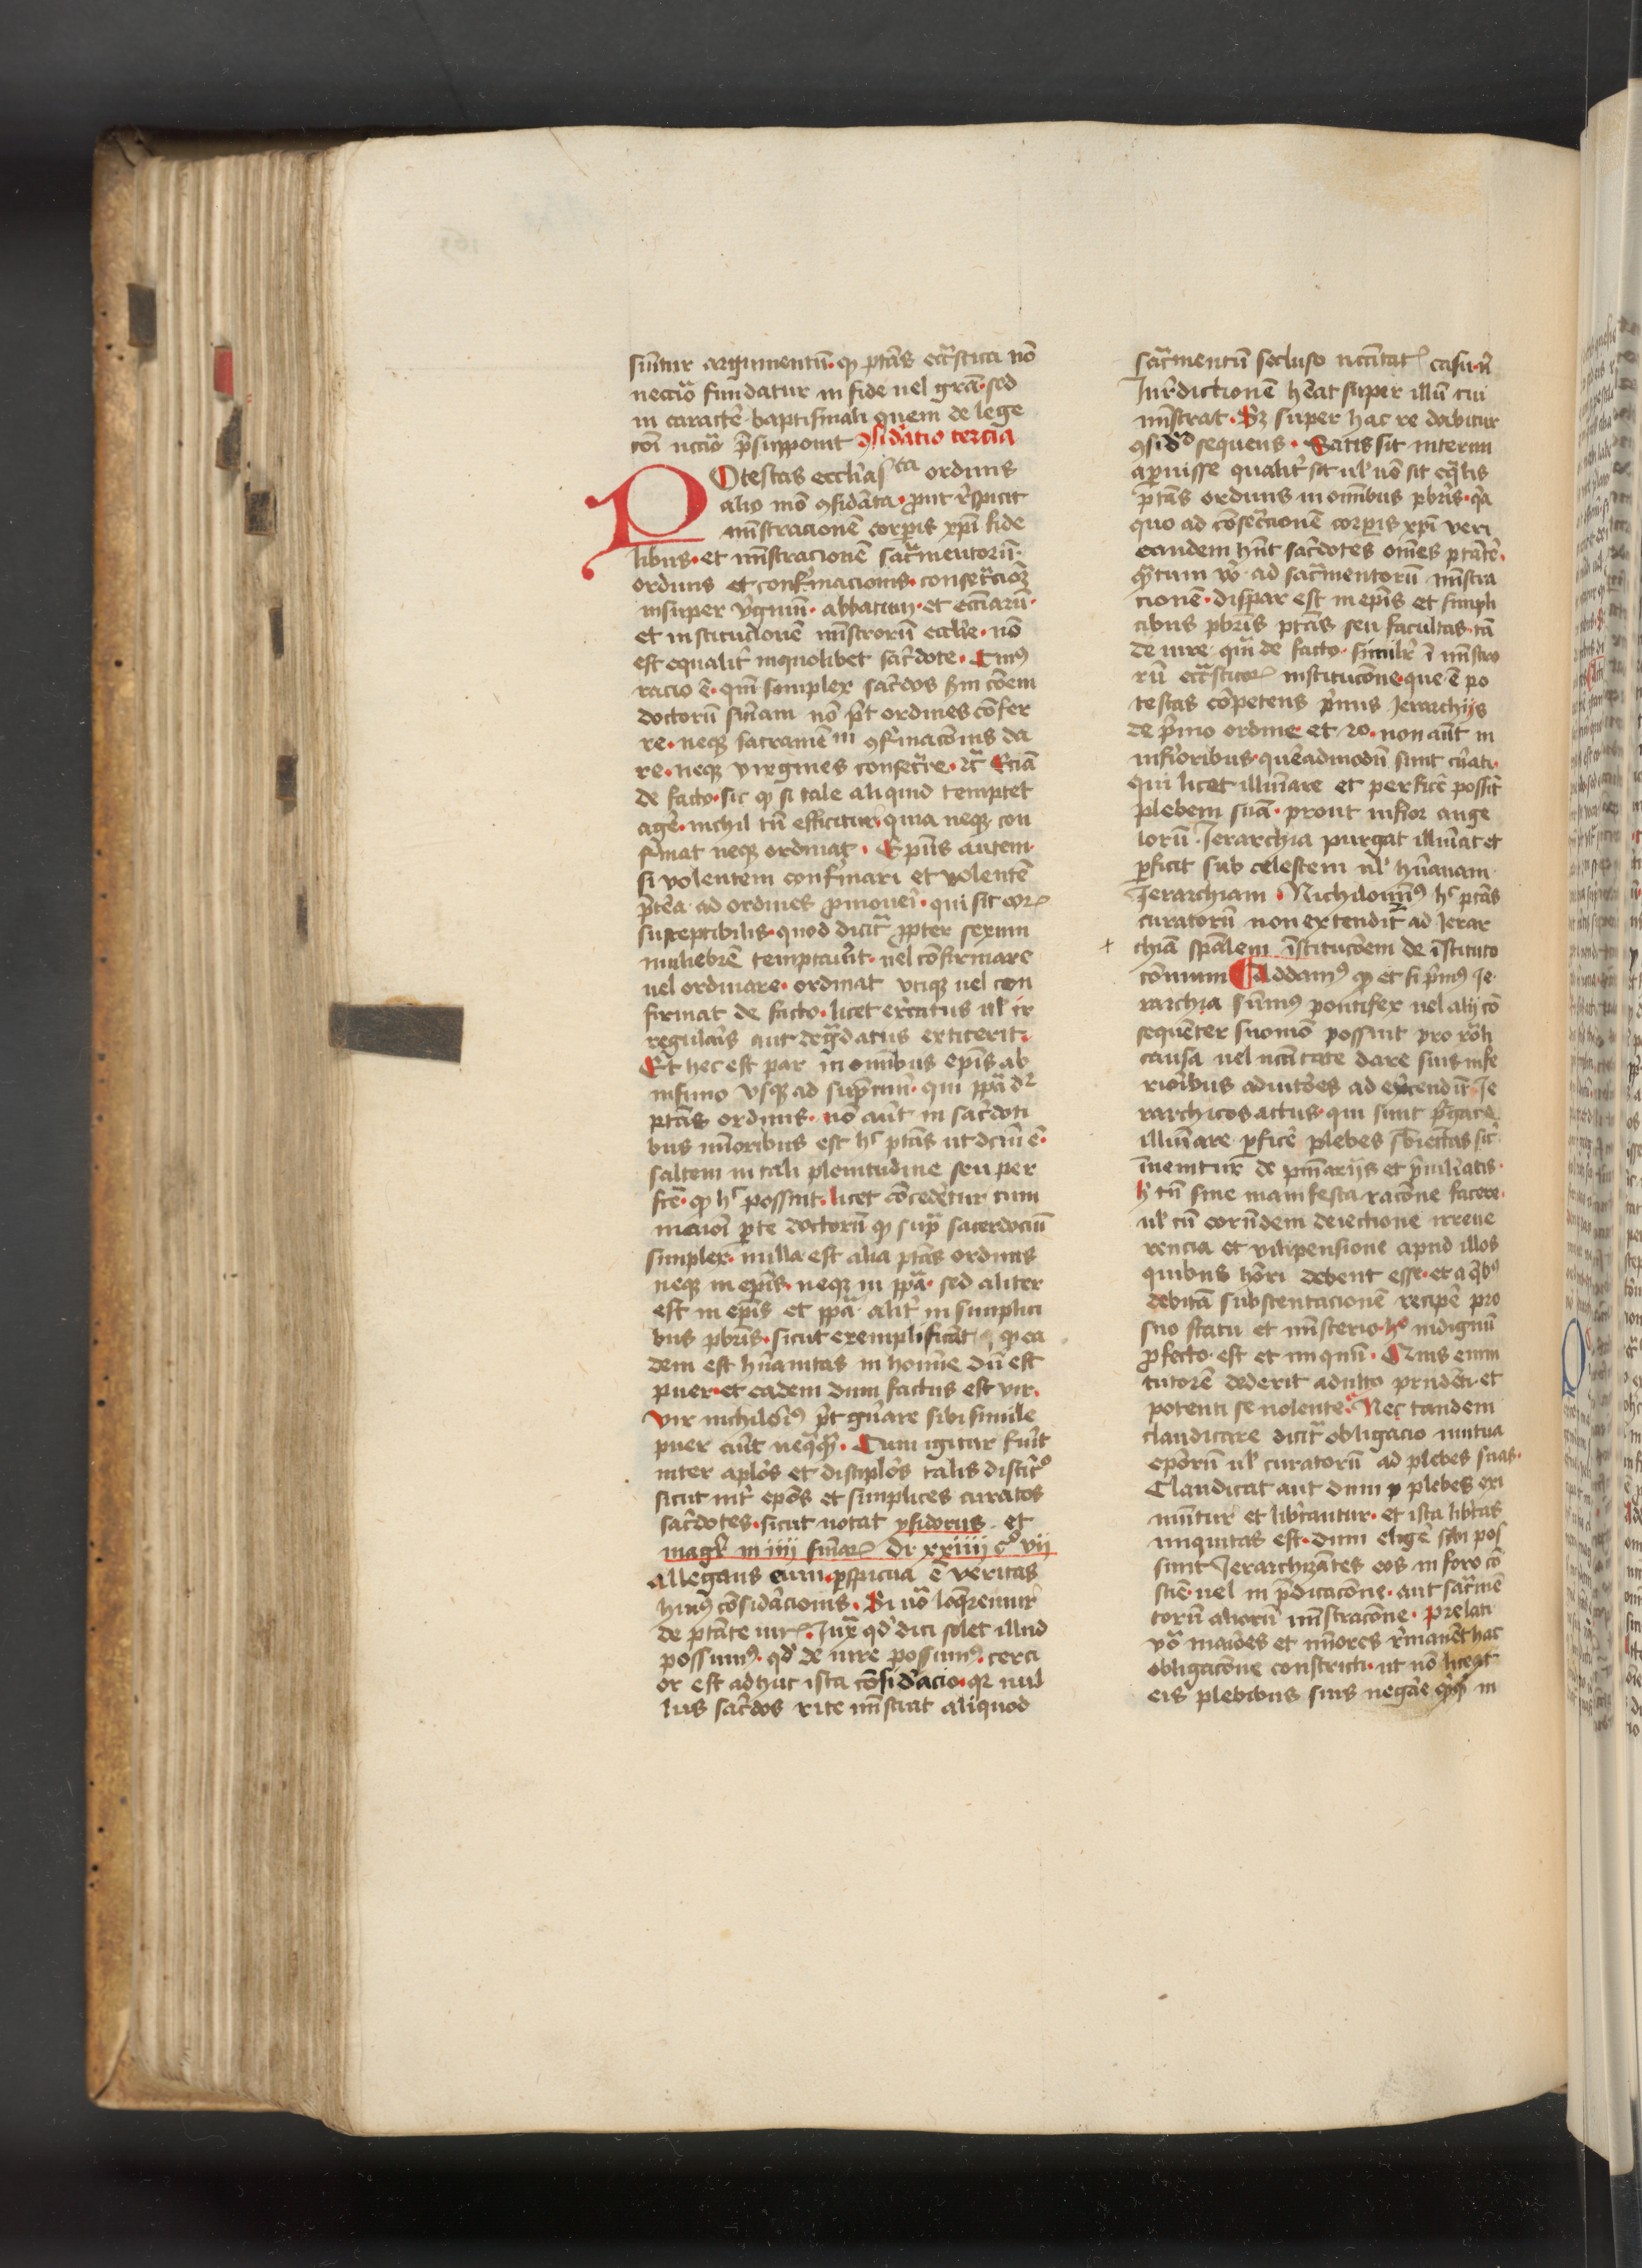 sumtur argumentū · qꝫ ptās eccāstica nō
neccāo fundatur in fide uel grā · sed
in carattē baptismali quem de lege
coī nccāo p̄supponit ꝯsid̄atio tercia
Potestas eccl̄iasᵗᶜᵃ ordinis
alio mō ꝯsid̄ata · prout r̄spicit
mīstracionē corpis xp̄i fide
libus · et mīstracionē sac̄mentorū ·
ordinis et confirmacionis · consec̄cioꝫ
insuper v̄ginū · abbatum · et ecc̄iarū ·
et institucionē mīstrorū eccl̄ie · nō
est equalit̄ inquolibet sac̄dote · Cuiꝰ
racio ē · qm̄ simplex sac̄dos scd̄m cōem
doctorū sīnam nō pōt ordines cōfer
re · neqꝫ sacramēᵐ ꝯfirmacōnis da
re · neqꝫ virgines consec̄re · ⁊c̄ Eciā
de facto · sic qꝫ si tale aliquid temptet
agē · nichil tn̄ efficitur · quia neqꝫ con
firmat neqꝫ ordinat · Ep̄us autem ·
si volentem confirmari et volentē
p̄terea ad ordines p̄moueri · qui sit eoꝝ
susceptibilis · quod dicit̄ ꝓpter sexum
muliebrē temptauit̄ · uel cōfirmare
uel ordinare · ordinat vtiqꝫ uel con
firmat de facto · licet exc̄catus ul̄ ir
regularis aut degradatus extiterit ·
Et hec est par in omībus ep̄is ab
infimo vsqꝫ ad supremū · qui pp̄a dr̄
ptās ordinis · nō aūt in sac̄doti
bus mīoribus est hᶜ ptās ut dc̄m ē ·
saltem in tali plenitudine seu per
fc̄ē · qꝫ hᶜ possint · licet cōcederetur cum
maiori pte doctorū qꝫ sup̄ sacerdociū
simplex · nulla est alia ptās ordinis
neqꝫ in ep̄is · neqꝫ in pp̄a · sed aliter
est in ep̄is et pp̄a alit̄ in simplici
bus pbr̄is · sicut exemplificāt · qꝫ ea
dem est hūanitas in homīe dū est
puer · et eadem dum factus est vir ·
vir nichilomīꝰ pōt gn̄are sibi simile
puer aūt neq̄q̄ꝫ · Cum igitur fūit
inter aplōs et disciplōs talis distīcᵒ
sicut int̄ epōs et simplices curatos
sac̄dotes · sicut notat ysidorus · et
magr̄ in iiii sn̄iaꝝ Dr xxiiii cᵒ vii
allegans eum · p̄spicua ē veritas
huiꝰ cōsid̄acionis · Si uō loq̄remur
de ptāte iurꝭ · Iux̄ qd̄ dici solet illud
possumꝰ · qd̄ de iure possumꝰ · certi
or est adhuc ista cōsid̄acio · qꝛ nul
lus sac̄dos rite mīstrat aliquod
sac̄mentū secluso nccītatꝭ casu · nꝭ
Iurꝭdictionē hēat super illū cui
mīstrat · Sꝫ super hac re dabitur
ꝯsid̄ᵒ sequens · Satis sit interim
aperuisse qualit̄ sit ul̄ nō sit eq̄lis
ptās ordinis in omībus pbr̄is · qꝛ
quo ad cōsec̄cionē corpis xp̄i veri
eandem hn̄t sac̄dotes om̄es ptātē ·
qᷓtum vō · ad sac̄mentorū mīstra
cionē · dispar est in ep̄is et simpli
cibus pbr̄is ptās seu facultas tā
de iure qm̄ de facto · similr̄ ī mīstro
rū eccāsticoꝝ institucōne que ē po
testas cōpetens p̄mis Ierarchijs
de p̄mo ordine et 2o · non aūt in
inf̄ioribus · queadmodū sunt curati ·
qui licet illūiare et perficē possit
plebem suā · prout infior ange
lorū · Ierarchia purgat illūiat et
pficit sub celestem ul̄ hūanam
Ierarchiam · Nichilomīꝰ hᶜ ptās
curatorū non extendit̄ ad Ierar
+ chiā spālem īstitucōem de īstituto
cōmum ¶ Addamꝰ qꝫ et si p̄mꝰ Ie
rarchia sūmꝰ pontifex uel alij cō
sequēter suomō possint pro rōli
causa uel nccītate dare suis infe
rioribus adiutōes ad ex̄cendū Ie
rarchicos actus · qui sunt p̄gare
illūiare pficē plebes sb̄iectas sic
īuenitur de pm̄arijs et p̄uiliatis ·
hͥ tn̄ sine manifesta racōne facere
ul̄ cū eorūdem deiectione irreue
rencia et vilipensione apud illos
quibus hōri debent esse · et a qibꝰ
debitā substentacionē recipē pro
suo statu et mīsterio · hᵒ indignū
ꝓfecto · est et iniquū · Quis enim
tutorē dederit adulto prudēti · et
potenti se nolente · Nec tandem
claudicare dicit̄ obligacio mutua
epōrū ul̄ curatorū ad plebes suas ·
Claudicat aut dum p plebes exi
mūtur et lib̄antur · et ista lib̄tas
iniquitas est · dum eligē sibi pos
sunt Ierarchizātes eos in foro cō
sciē · uel in p̄dicacōne · aut sac̄mē
torū aliorū mīstracōne · Prelati
vō maiōes et mīores r̄manēt hac
obligacōne constricti · ut nō liceat
eis plebibus suis negare qᷓqꝫ in